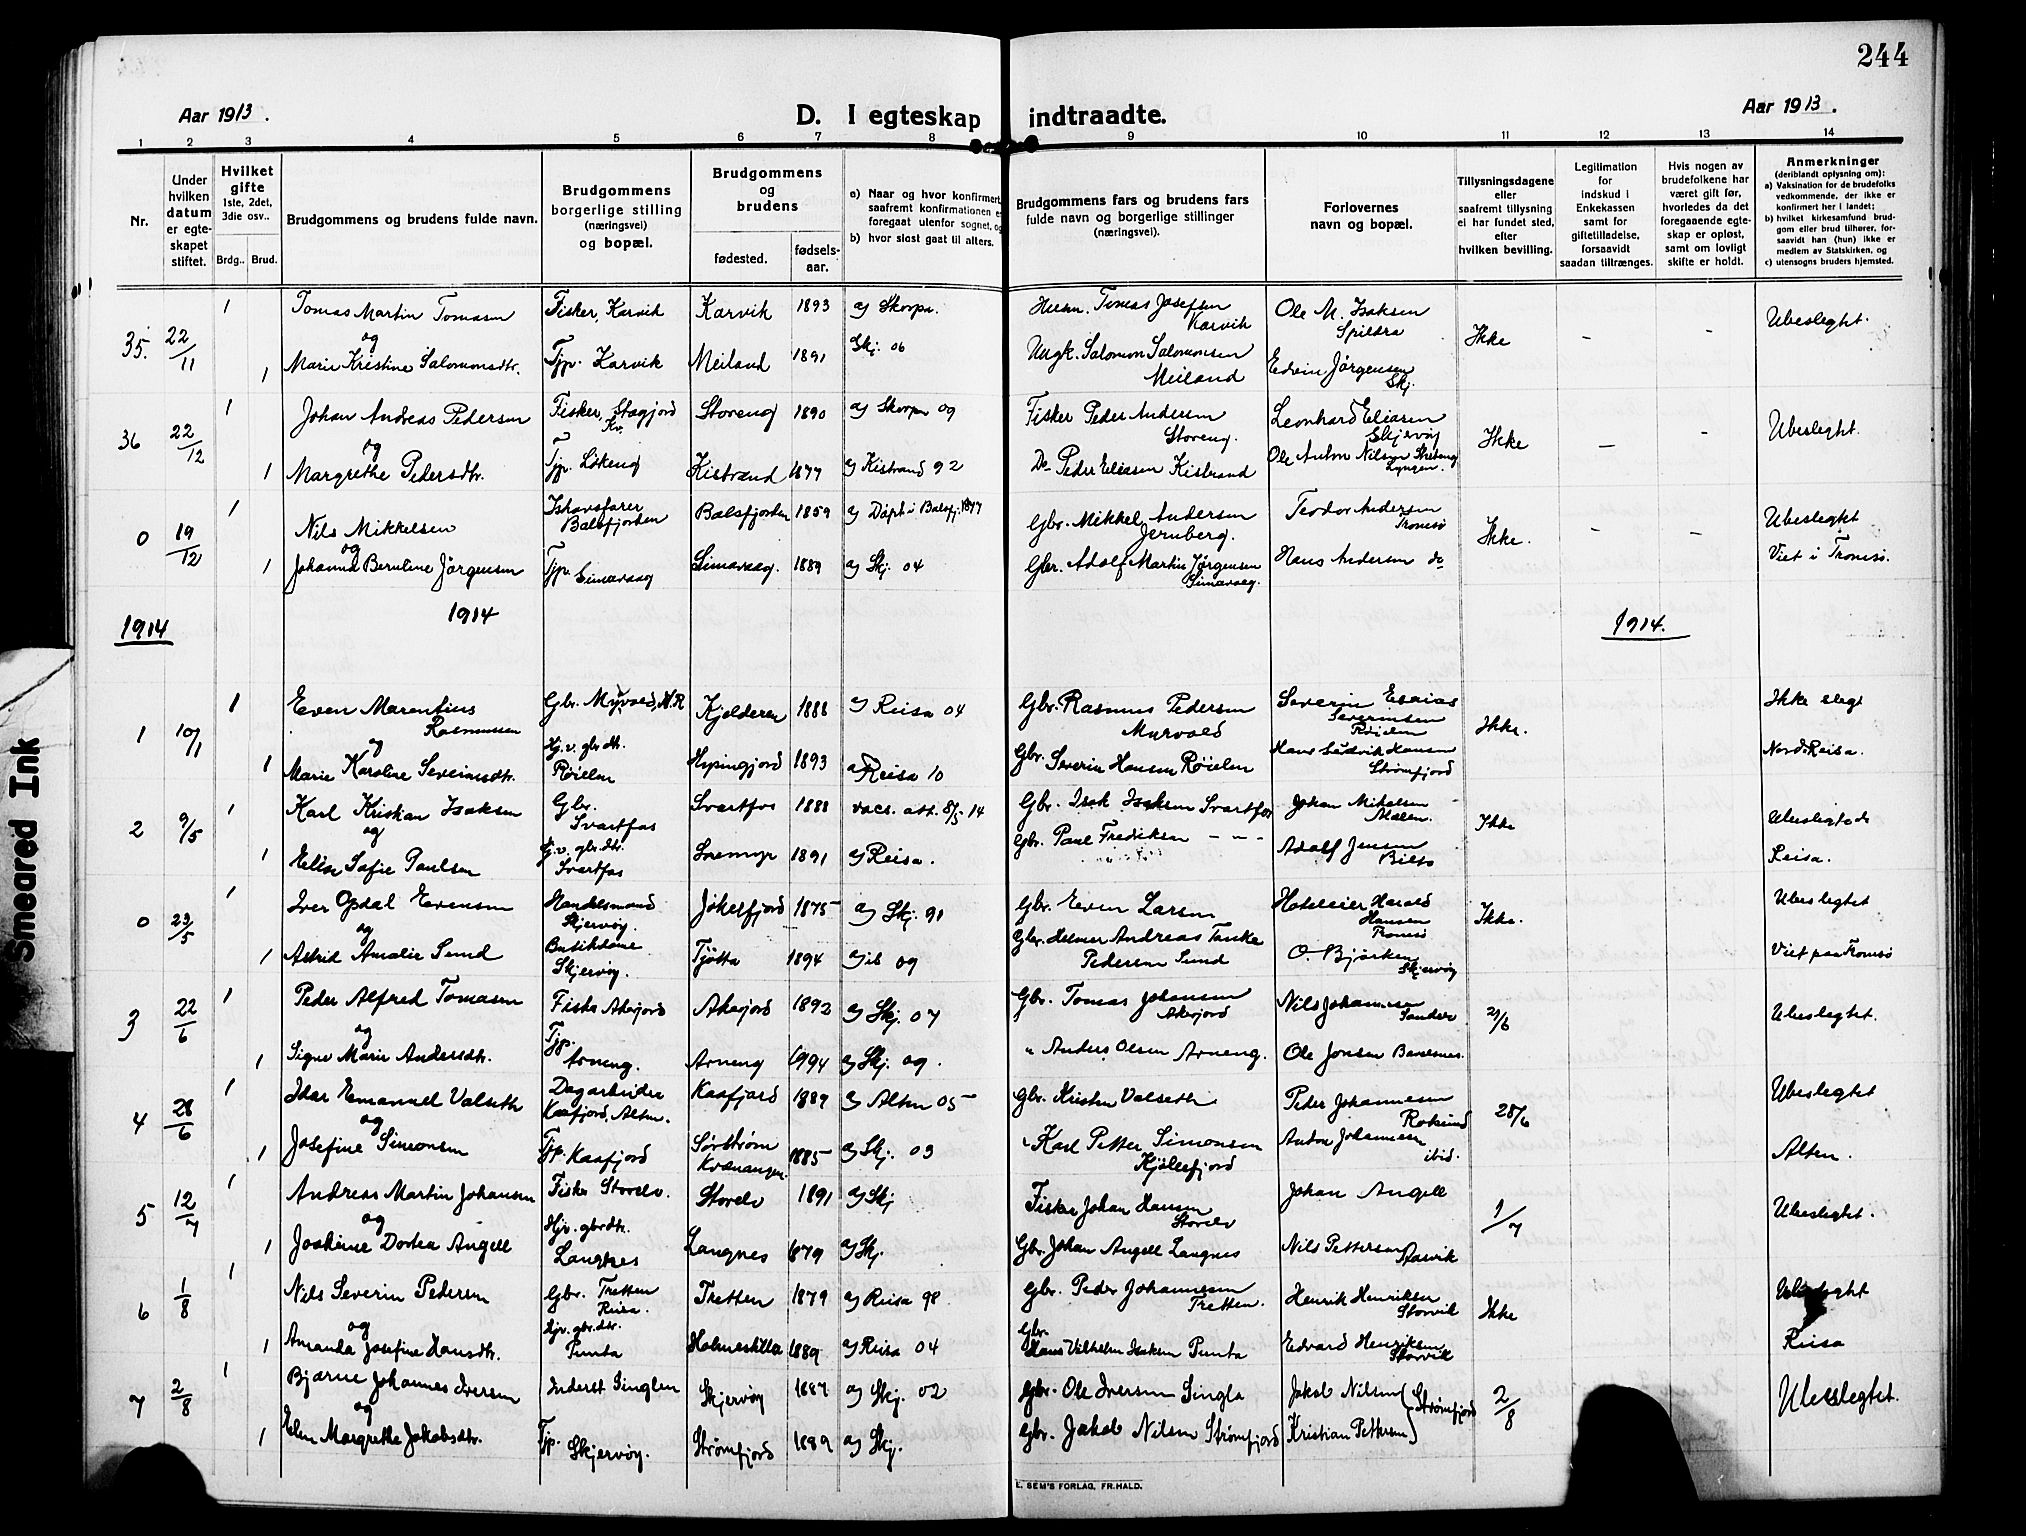 244
Aar 1913.
D. I egteskap indtraadte.
Aar 1913.
1 2 3 4 5 6 7 8 9 10 11 12 13 14
Nr.
Under hvilken datum er egteskapet stiftet.
Hvilket gifte 1ste, 2det, 3die osv..
Brdg.. Brud.
Brudgommens og brudens fulde navn.
Brudgommens borgerlige stilling (næringsvei) og bopæl.
Brudgommens og brudens
fødested.
fødsels-aar.
a) Naar og hvor konfirmert, saafremt konfirmationen e foregaat utenfor sognet, og
b) hvor sidst gaat til alters.
Brudgommens fars og brudens fars fulde navn og borgerlige stillinger (næringsvei).
Forlovernes navn og bopæl.
Tillysningsdagene eller saafremt tillysning ei har fundet sted, efter hvilken bevilling.
Legitimation for indskud i Enkekassen samt for giftetilladelse, forsaavidt saadan tiltrænges.
Hvis nogen av brudefolkene har været gift før, hvorledes da det foregaaende egteskap er opløst, samt om lovligt skifte er holdt.
Anmerkninger (deriblandt oplysning om):
a) Vaksination for de brudefolks vedkommende, der ikke er konfirmert her i landet;
b) hvilket kirkesamfund brudgom eller brud tilhører, forsaavidt han (hun) ikke er medlem av Statskirken, og
c) utensogns bruders hjemsted.
35. 22/11 1 Tomas Martin Tomasen Fisker, Karvik Karvik 1893 a) Skorpa. Tomas Josefsen Karvik Ole M. Isaksen Spildra Ikke - - Ubeslegtet.
og
1 Marie Kristine Salomonsdtr. Tjp. Karvik Meiland 1891 Skj. 06 Ungk. Salomon Salomonsen Meiland Edvin Jørgensen Skj.
36 22/12 1 Johan Andreas Pedersen Fisker, Kv. Storeng 1890 a) Skorpa 09 Fisker Peder Andersen Storeng. Leonhard Eliasen Skjervøy Ikke - - Ubeslegtet.
og
1 Margrethe Pedersdtr. Tjp. Løkeng Kistrand 1877 a) Kistrand 92 Do Peder Eliasen Kistrand Ole Anton Nilsen Lyngen.
0 19/12 1 Nils Mikkelsen Ishavsfarer Balsfjorden Balsfjorden 1859 a) Døpt i Balsfj. 1877 Gbr. Mikkel Andersen Jernberg. Teodor Andersen Tromsø Ikke. - - Ubeslegtet
og
1 Johanna Berntine Jørgensen Tjp. Simavaag Simavaag. 1889 a) Skj 04 Gbr. Adolf Martin Jørgensen Simavaag. Hans Andersen do Viet i Tromsø.
1914 1914 1914.
1 10/1 1 Even Marentius Rasmussen Gbr. Myrvold, N.R Kjelderen 1888 a) Reisa 04 Gbr. Rasmus Pedersen Myrvold Severin Esaias Severinsen Røielen Ikke. Ikke slegt
og
1 Marie Karoline Severinsdtr. Hj. v. gbr.dtr. Røielen 1893 a) Reisa 10 Gbr. Severin Hansen Røielen Hans Ludvik Hansen Strømfjord Nord-Reisa.
2 9/5 1 Karl Kristian Isaksen Gbr. Svartfos Svartfos 1888 vacs. att. 8/5 14 Gbr. Isak Isaksen Svartfos Johan Mikalsen Ikke Ubeslegtede
og
1 Elise Sofie Paulsen Hj. v. gbr.dtr. Svartfos 1891 a) Reisa. Gbr. Paul Fredriksen - " - Adolf Jensen Bilto Reisa.
0 23/5 1 Iver Opdal Evensen Handelsmand Skjervøy. Jøkelfjord 1875 a) Skj. 91 Gbr. Even Larsen Hoteleier Harald Hansen Tromsø Ikke. Ubeslegtet
og
1 Astrid Amalie Sund Skjervøy. Tjøtta 1894 a) ib 09 Gbr. Helmer Andreas Tanke Pedersen Sund O. Bjørken Skjervøy Viet paa Tromsø
3 22/6 1 Peder Alfred Tomasen Fisker Akerjord Akerjord 1892 a) Skj. 07 Gbr. Tomas Johansen Akerjord Nils Johannesen 21/6 Ubeslegtet.
og
1 Signe Marie Andersdtr. Tjp. Arneng. Arneng 1994 a) Skj. 09. " Anders Olsen Arneng. Ole Jonsen
4 28/6 1 Idar Emanuel Valseth Dagarbeider Kaafjord, Alten. Kaafjord 1889 a) Alten 05 Gbr. Kristen Valseth Peder Johannesen Rotsund 28/6 Ubeslegtet
og
1 Josefine Simonsen Tjp. Kaafjord Sørstrøm Kvænangen 1885 a) Skj. 03 " Karl Petter Simonsen Anton Johannesen ibid. Alten.
5 12/7 1 Andreas Martin Johansen Fisker Storelv. Storelv 1891 a) Skj Fisker Johan Hansen Storelv Johan Angell 1/7 Ubeslegtet.
og
1 Josefine Dortea Angell Hjv. gbrdtr. Langnes Langnes 1879 a) Skj. Gbr. Johan Angell Langnes Nils Pettersen
6 1/8 1 Nils Severin Pedersen Gbr. Tretten Reisa. Tretten 1879 a) Reisa 98 Gbr. Peder Johannesen Tretten. Henrik Henriksen Storvik Ikke Ubeslegtet
og
1 Amanda Josefine Hansdtr. Hjv. gbr.dtr. Punta 1889 a) Reisa 04 Gbr. Hans Vilhelm Isaksen Punta Edvard Henriksen Storvik Reisa
7 2/8 1 Bjarne Johannes Iversen Inderst Singlen Skjervøy 1887 a) Skj. 02 Gbr. Ole Iversen Singla Jakob Nilsen 2/8 Ubeslegtet.
og
1 Elen Margrethe Jakobsdtr. Tjp. Skjervøy. Strømfjord 1889 a) Skj. Gbr. Jakob Nilsen Strømfjord Kristian Pettersen Strømfjord
E. SEM'S FORLAG, FR.HALD.
Smeared Ink